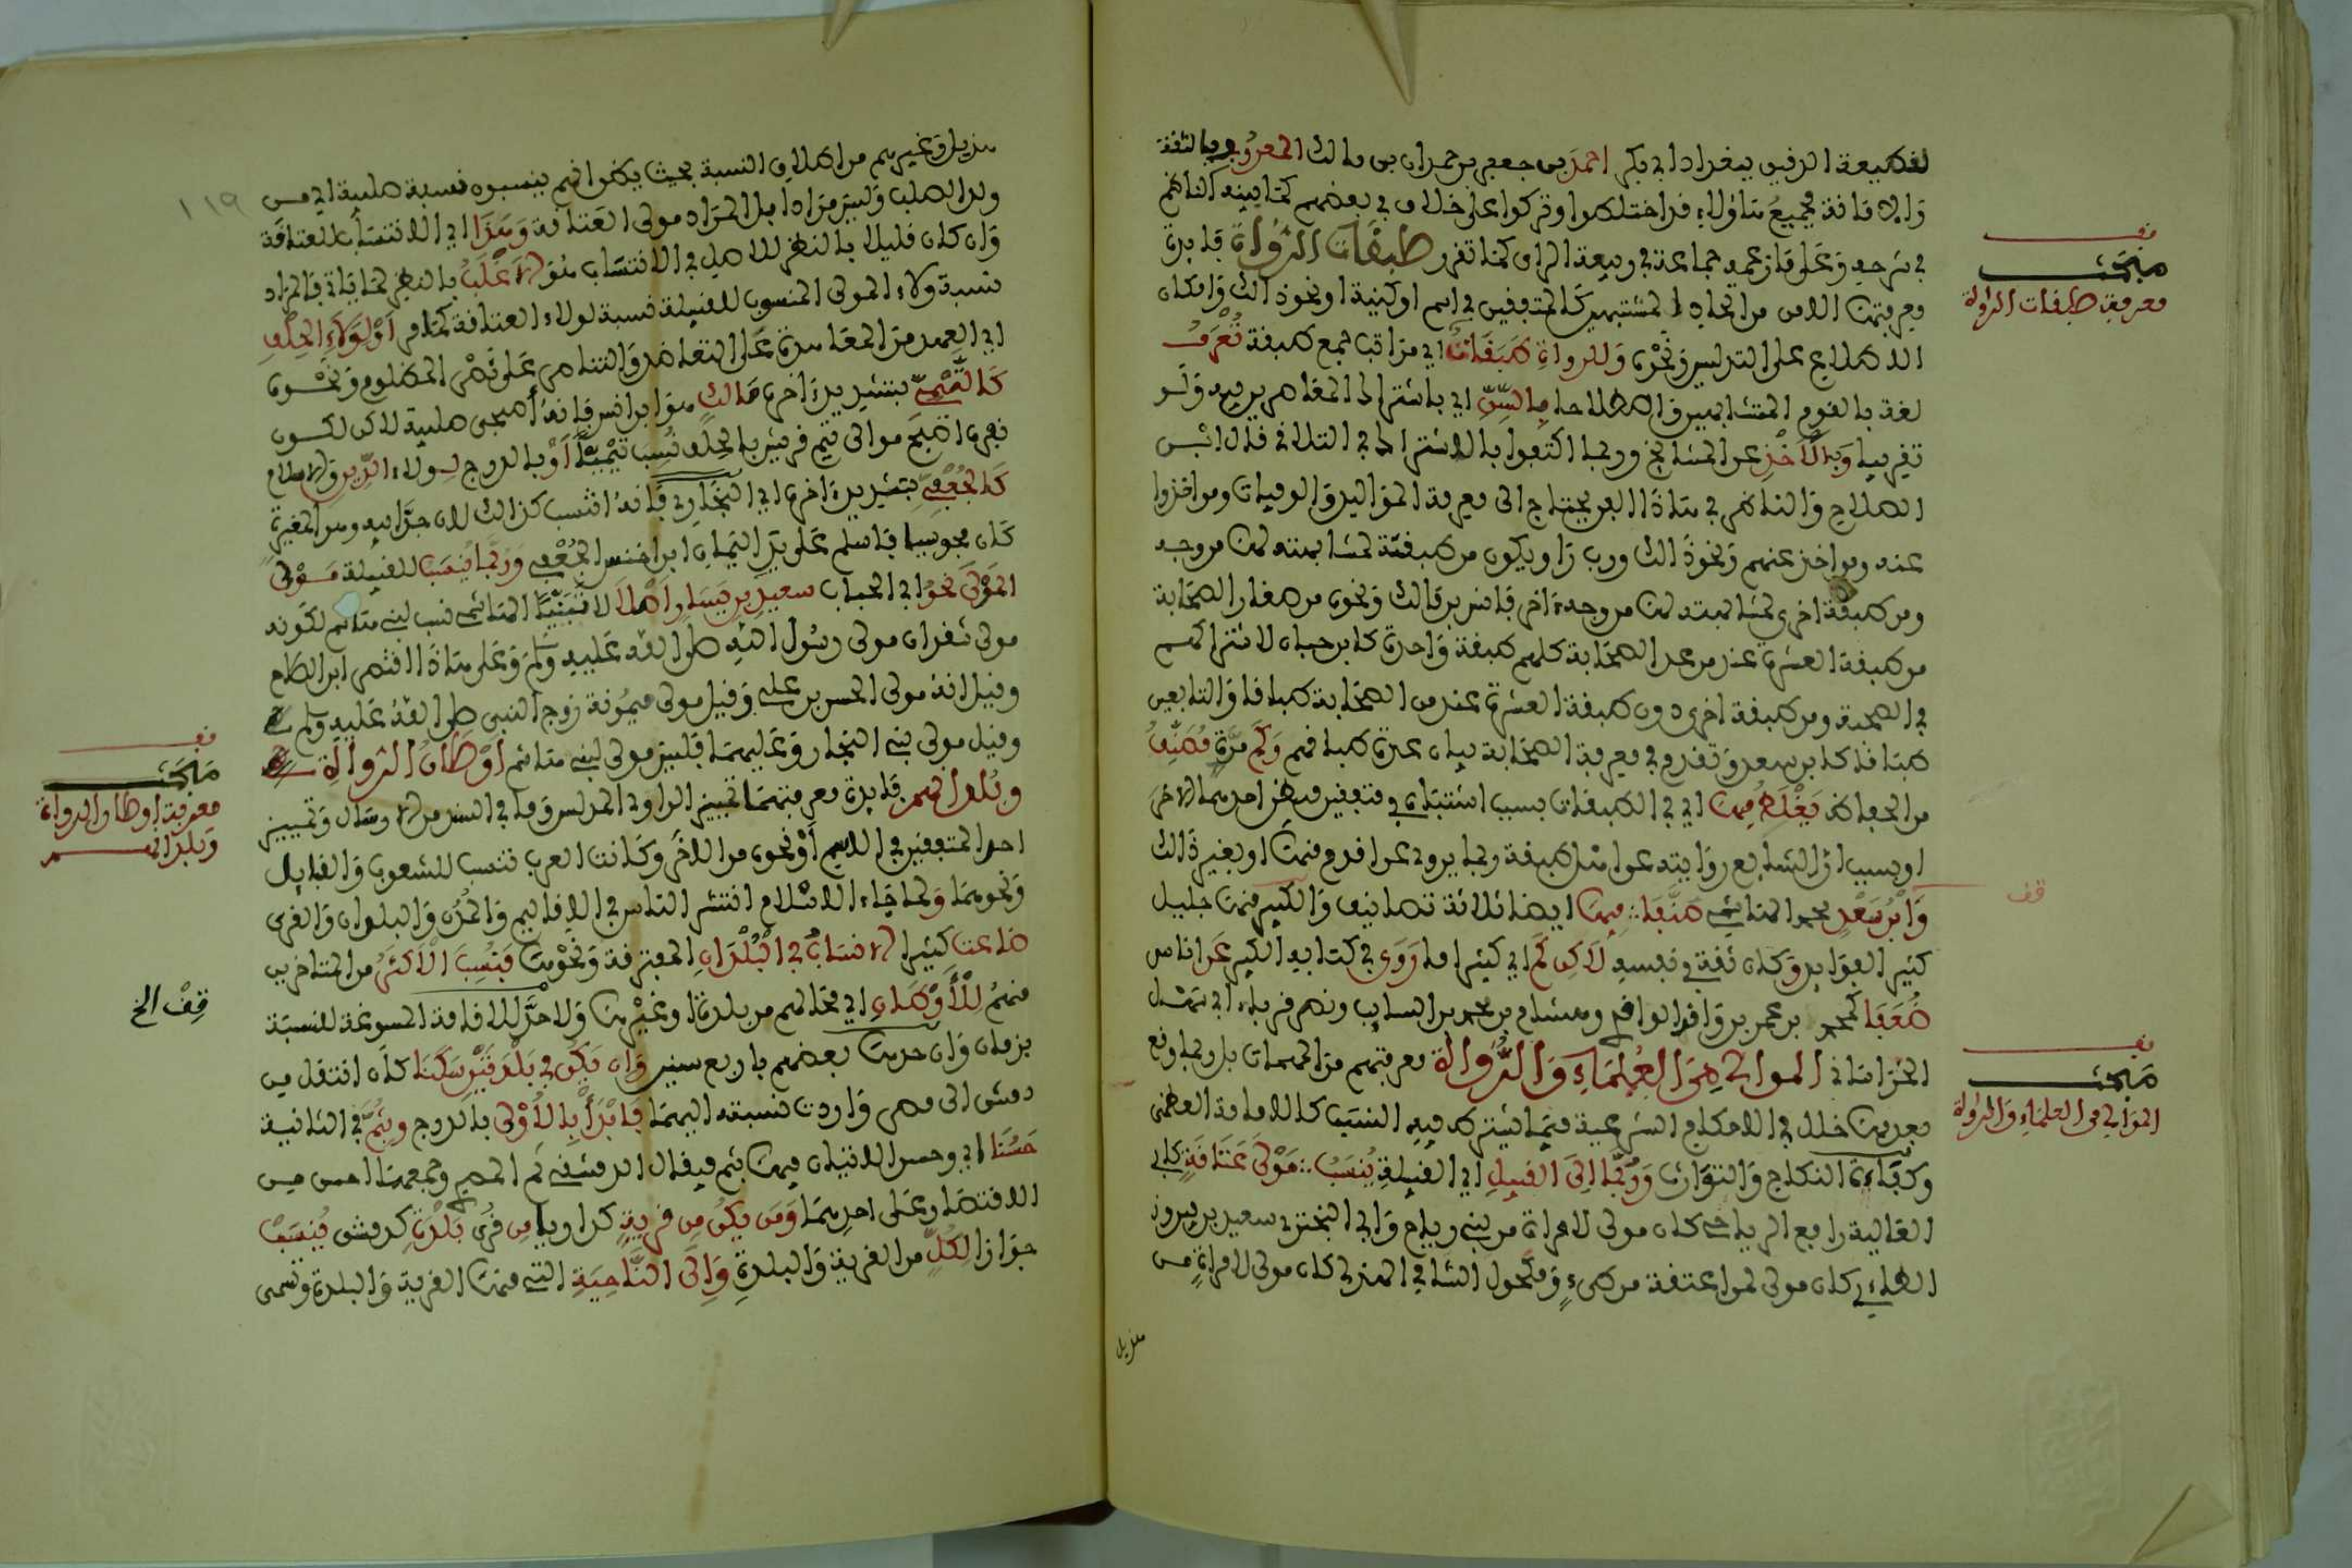 لقطيعة الدقيق ببغداد ابي بكر احمد بن جعفر بن حمدان بن مالك المعروف بالثقة
في شرحه وعلى ما زعمه جماعة في ربيعة الراي كما تقرر طبقات الرواة فايدة
معرفتها الامن من تداخل المشتبهين كالمتفقين في اسم او كنية او نحو ذالك وامكان
الاطلاع على التدليس ونحوه وللرواة طبقات اي مراتب جمع طبقة تعرف
لغة بالقوم المتشابهين واصطلاحا بالسن اي باشتراط المعاصرين فيه ولو
تقريبا وبالاخذ عن المشايخ وربما اكتفوا بالاشتراط في التلاقي قال ابن
الصلاح والناظر في هاذا الفن يحتاج الى معرفة المواليد والوفيات ومن اخذوا
عنه ومن اخذ عنهم ونحو ذالك ورب راو يكون من طبقة لمشابهته لها من وجه
ومن طبقة اخرى لمشابهته لها من وجه اخر فانس بن مالك ونحوه من صغار الصحابة
من طبقة العشرة عند من عد الصحابة كلهم طبقة واحدة كابن حبان لاشتراكهم
في الصحبة ومن طبقة اخرى دون طبقة العشرة عند من الصحابة طباقا والتابعين
طباقا كابن سعد وتقدم في معرفة الصحابة بيان عدة طباقهم وكم مرة مصنف
من الحفاظ يغلط فيها اي في الطبقات بسبب اشتباه في متفقين فيظن احدهما الاخر
او بسبب ان الشايع روايته عن اهل طبقة ربما يروي عن اقدم منها او بغير ذالك
وابن سعد محمد الهاشمي صنفا فيها ايضا ثلاثة تصانيف والكبير منها جليل
كثير الفوايد وكان ثقة في نفسه لاكن كم اي كثيرا ما روى في كتابه الكبير عن اناس
ضعفا كمحمد بن عمر بن واقد الواقدي وهشام بن محمد بن السايب ونصر بن باب ابي سهل
الخراساني الموالي من العلماء والرواة معرفتهم من المهمات بل ربما وقع
بعدمها خلل في الاحكام الشرعية فيما يشترط فيه النسب كالامامة العظمى
وكفاءة النكاح والتوارث وربما الى القبيل اي القبيلة ينسب مولى عتاقة كابي
العالية رافع الرياحي كان مولى لامراة من بني رياح وابي البختري سعيد بن فيروز
الطاءي كان مولى لمن اعتقه من طيء ومكحول الشامي الهذلي كان مولى لامراة من
هذيل
قف
مبحث
معرفة طبقات الرواة
قف
قف
مبحث
الموالي من العلماء والرواة
١١٩
هذيل وغيرهم من اطلاق النسبة بحيث يظن انهم ينسبون نسبة صلبية اي من
ولد الصلب وليس مرادا بل المراد مولى العتاقة وهذا اي الانتساب للعتاقة
وان كان قليلا بالنظر للاصل في الانتساب هو الاغلب بالنظر لما ياتي فالمراد
نسبة ولاء المولى المنسوب للقبيلة نسبة لولاء العتاقة كما مر او لولاء الحلف
اي العهد من المعاهدة على التعاضد والتناصر على نصر المظلوم ونحوه
كالتيمي بتشديد اخره مالك هو ابن انس فانه اصبحي صلبية لاكن لكون
نفره اصبح موالي تيم قريش بالحلف نسب تيميا او بالدرج لولاء الدين والاسلام
كالجعفي بتشديد اخره اي البخاري فانه انتسب كذالك لان جد ابيه وهو المغيرة
كان مجوسيا فاسلم على يد اليمان ابن اخنس الجعفي وربما ينسب للقبيلة مولى
المولى نحو ابي الحباب سعيد بن يسار اصلا لا تبنيا الهاشمي نسب لبني هاشم لكونه
مولى شقران مولى رسول الله صلى الله عليه وسلم وعلى هاذا اقتصر ابن الصلاح
وقيل انه مولى الحسن بن علي وقيل مولى ميمونة زوج النبي صلى الله عليه وسلم
وقيل مولى بني النجار وعليهما فليس مولى لبني هاشم اوطان الرواة
وبلدانهم فايدة معرفتهما تمييز الراوي المدلس وما في السند من الارسال وتمييز
احد المتفقين في الاسم او نحوه من الاخر وكانت العرب تنتسب للشعوب والقبايل
ونحوهما ولما جاء الاسلام انتشر الناس في الاقاليم والمدن والبلدان والقرى
ضاعت كثيرا الانساب في البلدان المتفرقة ونحوها فنسب الاكثر من المتاخرين
منهم للاوطان اي محالهم من بلدة او غيرها ولا حد للاقامة المسوغة للنسبة
بزمان وان حدها بعضهم باربع سنين وان يكن في بلدتين سكنا كان انتقل من
دمشق الى مصر واردت نسبته اليهما فابدا بالاولى بالدرج وبثم في الثانية
حسنا اي وحسن الاتيان فيها بثم فيقال الدمشقي ثم المصري وجمعهما احسن من
الاقتصار على احدهما ومن يكن من قرية كداريا من قرى بلدة كدمشق ينسب
جوازا لكل من القرية والبلدة والى الناحية التي منها القرية والبلدة وتسمى
قف
مبحث
معرفة اوطان الرواة
وبلدانهم
قف الخ